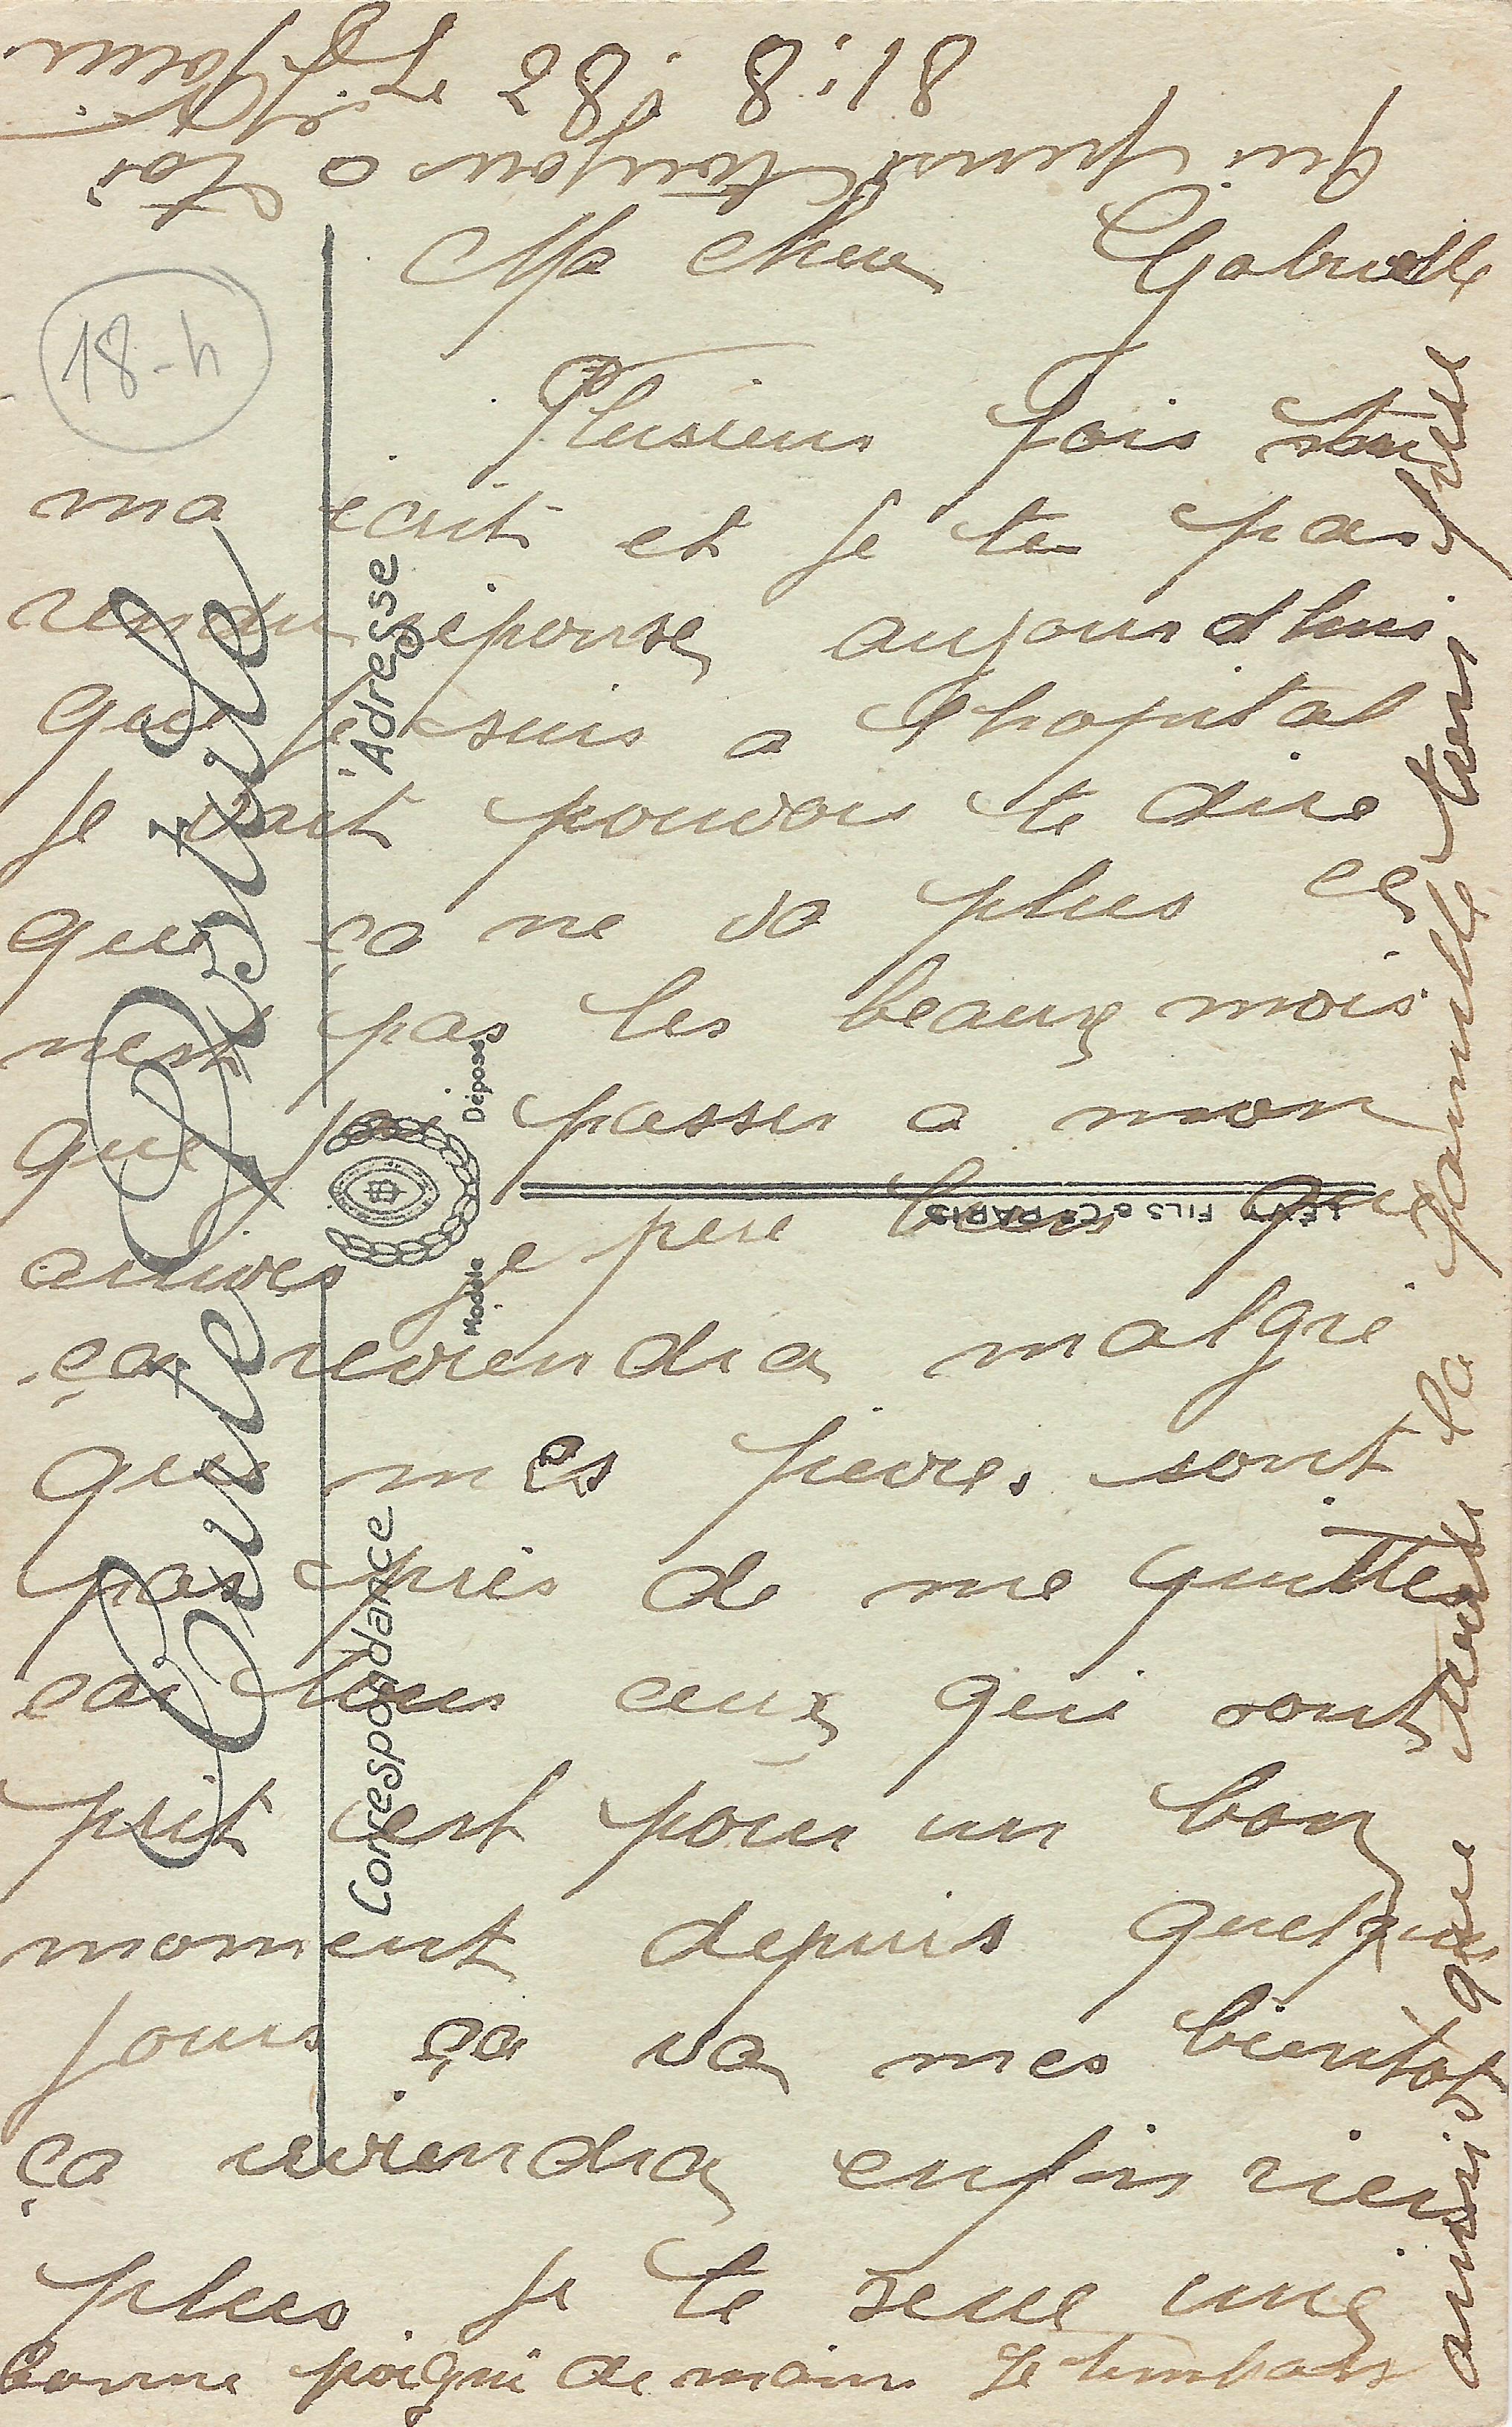 Ma chere Gabrielle
Plusieurs fois tu
ma ecrit et je te pas
rendu reponse aujourd'hui
que je suis a l'hopital
je vait pouvoir te dire
que ça ne va plus ce
nest pas les beaux mois
que jai passer a mon
arrives je pere bien que
ça reviendra malgré
que mes fievres sont
pas pres de me quittes
car tous ceux qui sont
prit cest pour un bon
moment depuis quelques
jours ça va mes bientot
ça reviendra enfin rien
plus je te sere une
bonne poigné de main Je tembrass
ainsi que toute la famille ton frere
qui pense toujours a toi
81.8.82
18-h
Carte Postale
Correspondance
Adresse
Modèle Déposé
LEVY FILS & Cie PARIS